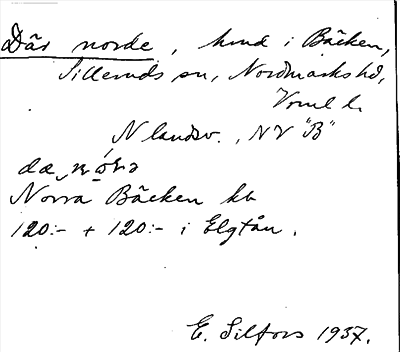 Där norde, hmd i Bäcken,
Silleruds sn, Nordmarks hd,
Vrml l.
N landsv., NV "B"
Norra Bäcken kb
120:- + 120:- i Elgtån.
E. Silfors 1937.